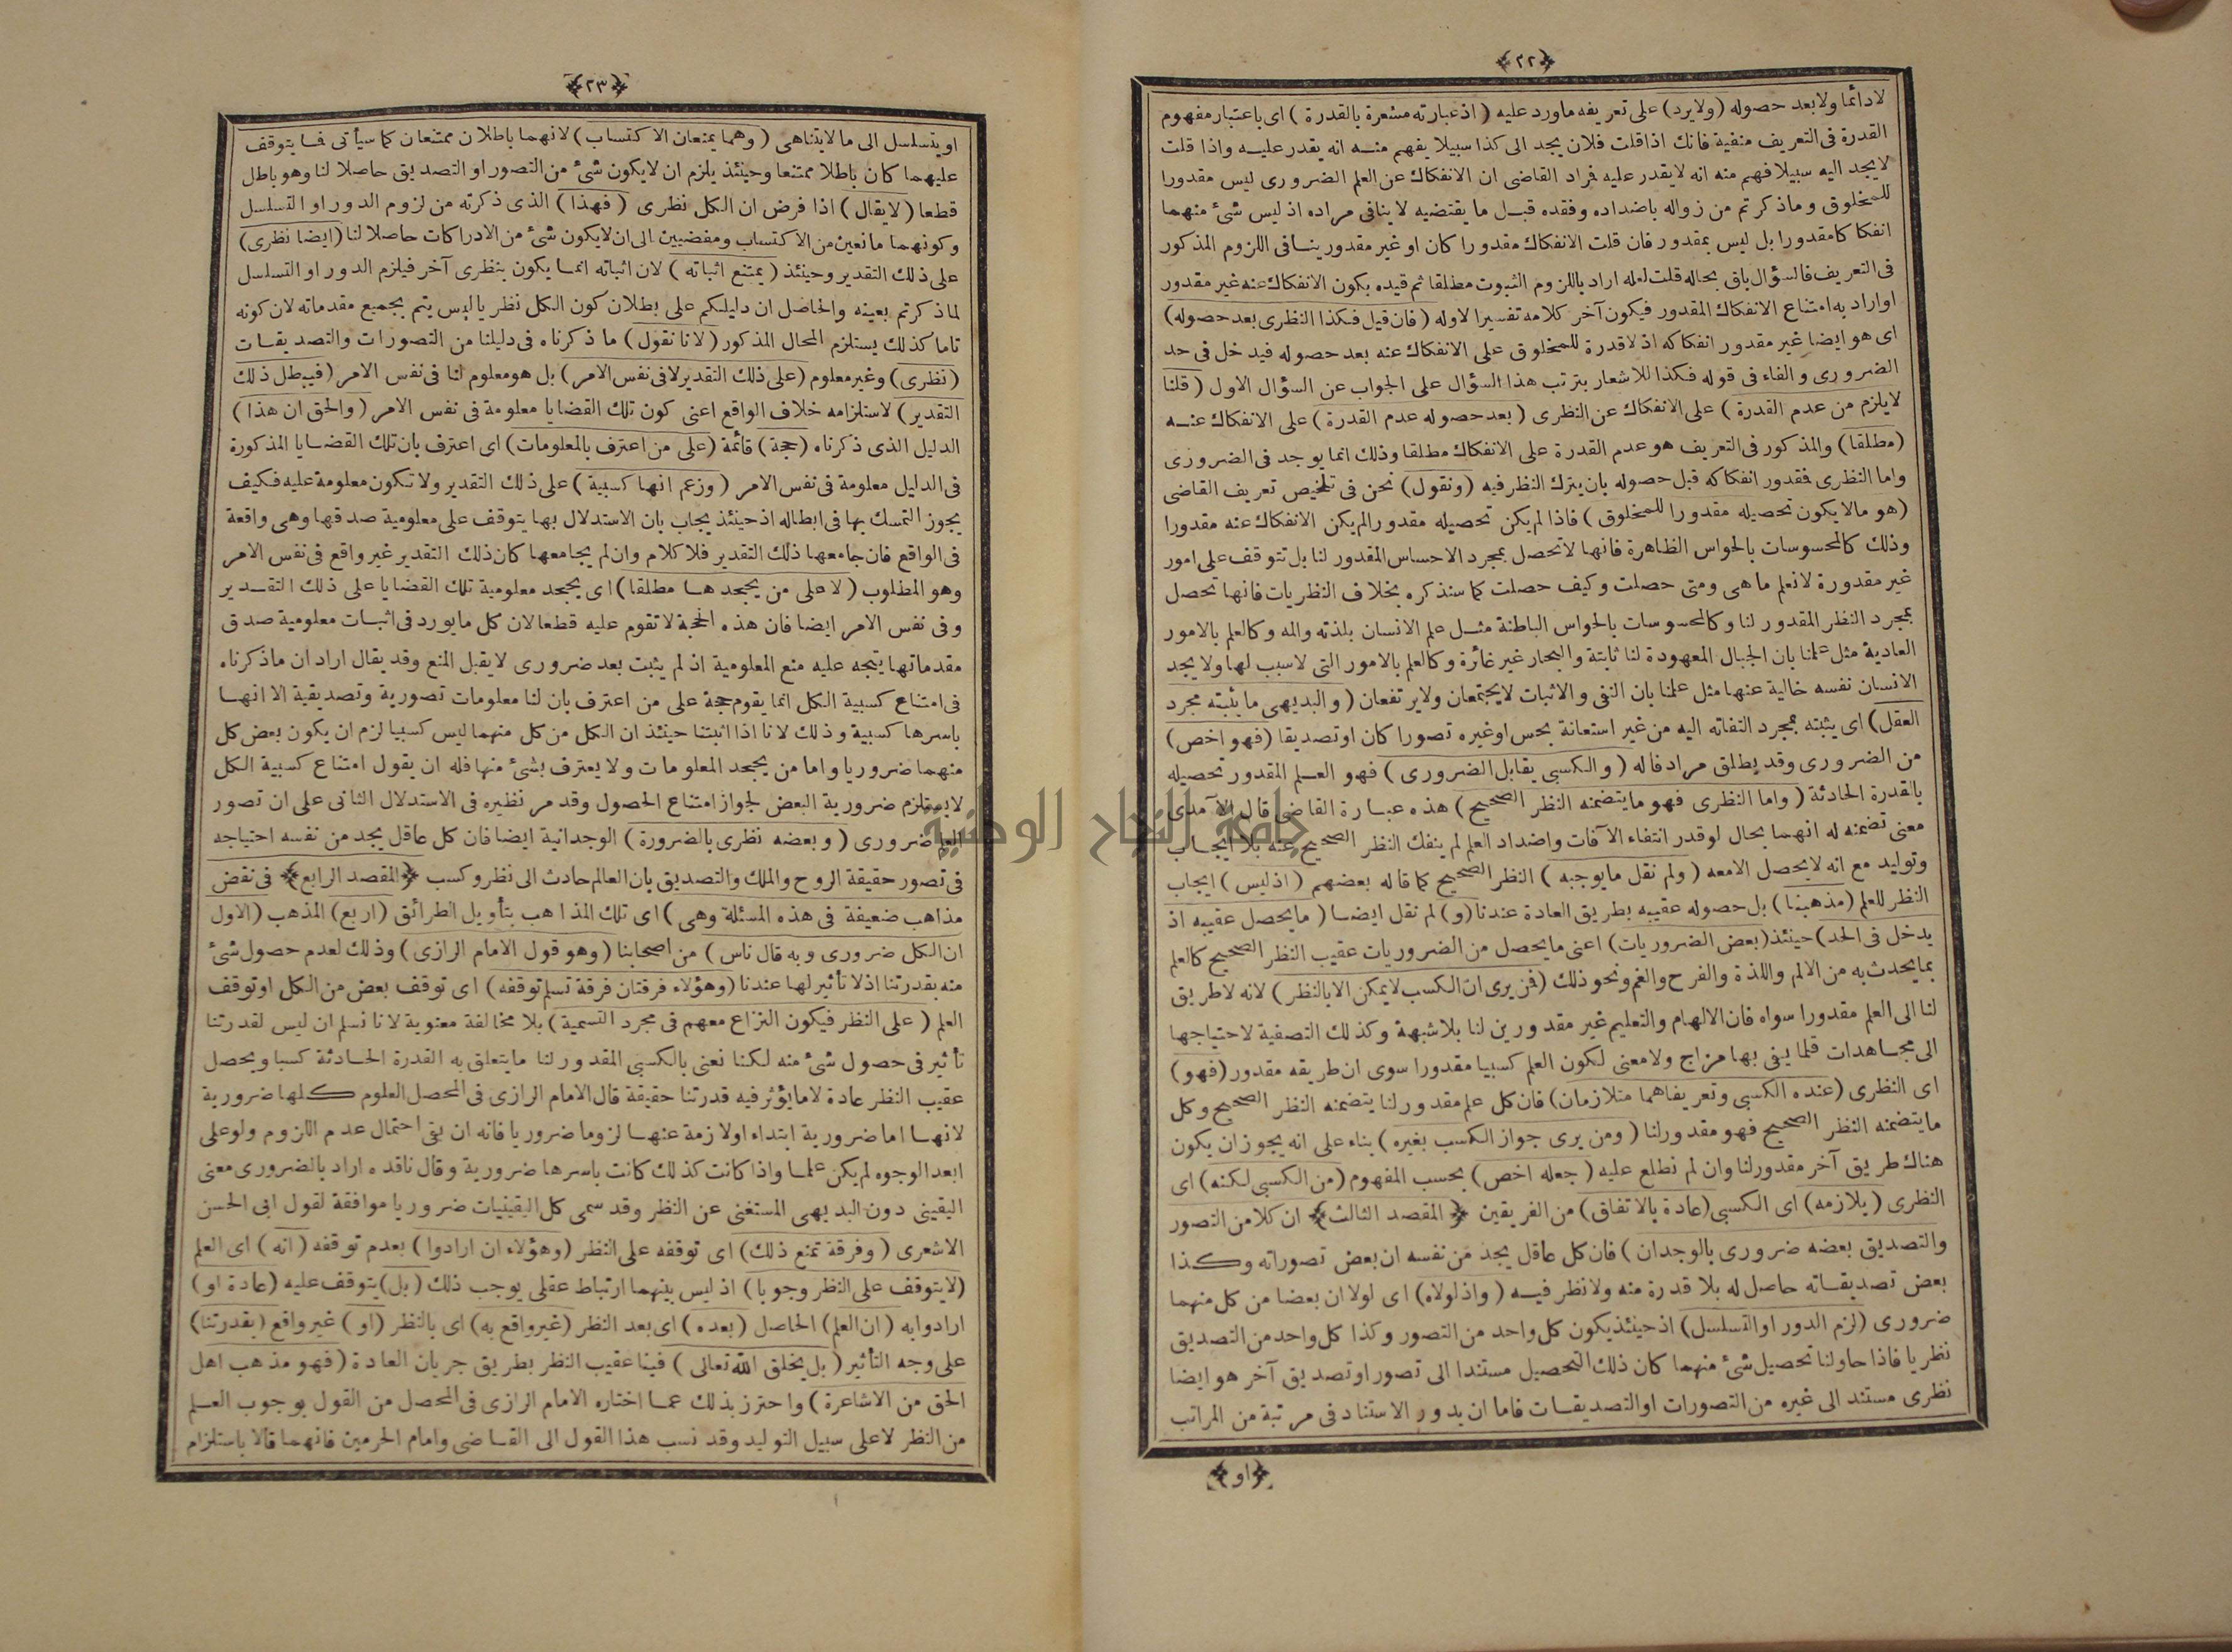 ﴿٢٢﴾
لادائما ولابعد حصوله (ولايرد) على تعريفه ماورد عليه (اذعبارته مشعرة بالقدرة) اى باعتبار مفهوم
القدرة فى التعريف منفية فانك اذاقلت فلان يجد الى كذا سبيلا يفهم منه انه يقدر عليه واذا قلت
لايجد اليه سبيلا فهم منه انه لايقدر عليه فراد القاضى ان الانفكاك عن العلم الضرورى ليس مقدورا
للمخلوق وماذكرتم من زواله باضداده وفقده قبل ما يقتضيه لاينافى مراده اذ ليس شئ منهما
انفكاكا مقدورا بل ليس بمقدور فان قلت الانفكاك مقدورا كان او غير مقدور ينافى اللزوم المذكور
فى التعريف فالسؤال باق بحاله قلت لعله اراد باللزوم الثبوت مطلقا ثم قيده بكون الانفكاك عنه غير مقدور
اواراد به امتناع الانفكاك المقدور فيكون آخر كلامه تفسيرا لاوله (فان قيل فكذا النظرى بعد حصوله)
اى هو ايضا غير مقدور انفكاكه اذ لاقدرة للمخلوق على الانفكاك عنه بعد حصوله فيدخل فى حد
الضرورى والفاء فى قوله فكذا للاشعار بترتب هذا السؤال على الجواب عن السؤال الاول (قلنا
لايلزم من عدم القدرة) على الانفكاك عن النظرى (بعد حصوله عدم القدرة) على الانفكاك عنه
(مطلقا) والمذكور فى التعريف هو عدم القدرة على الانفكاك مطلقا وذلك انما يوجد فى الضرورى
واما النظرى فقدور انفكاكه قبل حصوله بان يترك النظر فيه (ونقول) نحن فى تلخيص تعريف القاضى
(هو مالا يكون تحصيله مقدورا للمخلوق) فاذا لم يكن تحصيله مقدورا لم يكن الانفكاك عنه مقدورا
وذلك كالمحسوسات بالحواس الظاهرة فانها لاتحصل بمجرد الاحساس المقدور لنا بل تتوقف على امور
غير مقدورة لانعلم ماهى ومتى حصلت وكيف حصلت كما سنذكره بخلاف النظريات فانها تحصل
بمجرد النظر المقدور لنا وكالمحسوسات بالحواس الباطنة مثل علم الانسان بلذته والمه وكالعلم بالامور
العادية مثل علمنا بان الجبال المعهودة لنا ثابتة والبحار غير غائرة وكالعلم بالامور التى لاسبب لها ولايجد
الانسان نفسه خالية عنها مثل علمنا بان النفى والاثبات لايجتمعان ولايرتفعان (والبديهى مايثبته مجرد
العقل) اى يثبته بمجرد التفاته اليه من غير استعانة بحس اوغيره تصورا كان اوتصديقا (فهو اخص)
من الضرورى وقد يطلق مرادفا له (والكسبى يقابل الضرورى) فهو العلم المقدور تحصيله
بالقدرة الحادثة (واما النظرى فهو مايتضمنه النظر الصحيح) هذه عبارة القاضى قال الآمدى
معنى تضمنه له انهما بحال لوقدر انتفاء الآفات واضداد العلم لم ينفك النظر الصحيح عنه بلا ايجاب
وتوليد مع انه لايحصل الامعه (ولم نقل مايوجبه) النظر الصحيح كما قاله بعضهم (اذليس) ايجاب
النظر للعلم (مذهبنا) بل حصوله عقيبه بطريق العادة عندنا (و) لم نقل ايضا (مايحصل عقيبه اذ
يدخل فى الحد) حينئذ (بعض الضروريات) اعنى مايحصل من الضروريات عقيب النظر الصحيح كالعلم
بما يحدث به من الالم واللذة والفرح والغم ونحو ذلك (فن يرى ان الكسب لايمكن الابالنظر) لانه لاطريق
لنا الى العلم مقدورا سواه فان الالهام والتعليم غير مقدورين لنا بلاشبهة وكذلك التصفية لاحتياجها
الى مجاهدات قلما يفى بها مزاج ولامعنى لكون العلم كسبيا مقدورا سوى ان طريقه مقدور (فهو)
اى النظرى (عنده الكسبى وتعريفاهما متلازمان) فان كل علم مقدور لنا يتضمنه النظر الصحيح وكل
مايتضمنه النظر الصحيح فهو مقدور لنا (ومن يرى جواز الكسب بغيره) بناء على انه يجوز ان يكون
هناك طريق آخر مقدور لنا وان لم نطلع عليه (جعله اخص) بحسب المفهوم (من الكسبى لكنه) اى
النظرى (يلازمه) اى الكسبى (عادة بالاتفاق) من الفريقين ﴿المقصد الثالث﴾ ان كلا من التصور
والتصديق بعضه ضرورى بالوجدان) فان كل عاقل يجد من نفسه ان بعض تصوراته وكذا
بعض تصديقاته حاصل له بلا قدرة منه ولانظر فيه (واذ لولاه) اى لولا ان بعضا من كل منهما
ضرورى (لزم الدور اوالتسلسل) اذ حينئذ يكون كل واحد من التصور وكذا كل واحد من التصديق
نظريا فاذا حاولنا تحصيل شئ منهما كان ذلك التحصيل مستندا الى تصور اوتصديق آخر هو ايضا
نظرى مستند الى غيره من التصورات اوالتصديقات فاما ان يدور الاستناد فى مرتبة من المراتب
﴿او﴾
﴿٢٣﴾
اويتسلسل الى مالايتناهى (وهما يمنعان الاكتساب) لانهما باطلان ممتنعان كما سيأتى فما يتوقف
عليهما كان باطلا ممتنعا وحينئذ يلزم ان لايكون شئ من التصور او التصديق حاصلا لنا وهو باطل
قطعا (لايقال) اذا فرض ان الكل نظرى (فهذا) الذى ذكرته من لزوم الدور او التسلسل
وكونهما مانعين من الاكتساب ومفضيين الى ان لايكون شئ من الادراكات حاصلا لنا (ايضا نظرى)
على ذلك التقدير وحينئذ (يمتنع اثباته) لان اثباته انما يكون بنظرى آخر فيلزم الدور او التسلسل
لما ذكرتم بعينه والحاصل ان دليلكم على بطلان كون الكل نظريا ليس يتم بجميع مقدماته لان كونه
تاما كذلك يستلزم المحال المذكور (لانا نقول) ما ذكرناه فى دليلنا من التصورات والتصديقات
(نظرى) وغير معلوم (على ذلك التقدير لا فى نفس الامر) بل هو معلوم لنا فى نفس الامر (فيبطل ذلك
التقدير) لاستلزامه خلاف الواقع اعنى كون تلك القضايا معلومة فى نفس الامر (والحق ان هذا)
الدليل الذى ذكرناه (حجة) قائمة (على من اعترف بالمعلومات) اى اعترف بان تلك القضايا المذكورة
فى الدليل معلومة فى نفس الامر (وزعم انها كسبية) على ذلك التقدير ولا تكون معلومة عليه فكيف
يجوز التمسك بها فى ابطاله اذ حينئذ يجاب بان الاستدلال بها يتوقف على معلومية صدقها وهى واقعة
فى الواقع فان جامعها ذلك التقدير فلا كلام وان لم يجامعها كان ذلك التقدير غير واقع فى نفس الامر
وهو المطلوب (لا على من يجحدها مطلقا) اى يجحد معلومية تلك القضايا على ذلك التقدير
وفى نفس الامر ايضا فان هذه الحجة لاتقوم عليه قطعا لان كل مايورد فى اثبات معلومية صدق
مقدماتها يتجه عليه منع المعلومية اذ لم يثبت بعد ضرورى لايقبل المنع وقد يقال اراد ان ماذكرناه
فى امتناع كسبية الكل انما يقوم حجة على من اعترف بان لنا معلومات تصورية وتصديقية الا انها
باسرها كسبية وذلك لانا اذا اثبتنا حينئذ ان الكل من كل منهما ليس كسبيا لزم ان يكون بعض كل
منهما ضروريا واما من يجحد المعلومات ولا يعترف بشئ منها فله ان يقول امتناع كسبية الكل
لايستلزم ضرورية البعض لجواز امتناع الحصول وقد مر نظيره فى الاستدلال الثانى على ان تصور
العلم ضرورى (وبعضه نظرى بالضرورة) الوجدانية ايضا فان كل عاقل يجد من نفسه احتياجه
فى تصور حقيقة الروح والملك والتصديق بان العالم حادث الى نظر وكسب ﴿المقصد الرابع﴾ فى نقض
مذاهب ضعيفة فى هذه المسئلة وهى) اى تلك المذاهب بتأويل الطرائق (اربع) المذهب (الاول
ان الكل ضرورى وبه قال ناس) من اصحابنا (وهو قول الامام الرازى) وذلك لعدم حصول شئ
منه بقدرتنا اذ لا تأثير لها عندنا (وهؤلاء فرقتان فرقة تسلم توقفه) اى توقف بعض من الكل اوتوقف
العلم (على النظر فيكون النزاع معهم فى مجرد التسمية) بلا مخالفة معنوية لانا نسلم ان ليس لقدرتنا
تأثير فى حصول شئ منه لكنا نعنى بالكسبى المقدور لنا مايتعلق به القدرة الحادثة كسبا ويحصل
عقيب النظر عادة لا مايؤثر فيه قدرتنا حقيقة قال الامام الرازى فى المحصل العلوم كلها ضرورية
لانها اما ضرورية ابتداء اولازمة عنها لزوما ضروريا فانه ان بقى احتمال عدم اللزوم ولو على
ابعد الوجوه لم يكن علما واذا كانت كذلك كانت باسرها ضرورية وقال ناقده اراد بالضرورى معنى
اليقينى دون البديهى المستغنى عن النظر وقد سمى كل اليقينيات ضروريا موافقة لقول ابى الحسن
الاشعرى (وفرقة تمنع ذلك) اى توقفه على النظر (وهؤلاء ان ارادوا) بعدم توقفه (انه) اى العلم
(لايتوقف على النظر وجوبا) اذ ليس بينهما ارتباط عقلى يوجب ذلك (بل) يتوقف عليه (عادة او)
ارادوا به (ان العلم) الحاصل (بعده) اى بعد النظر (غير واقع به) اى بالنظر (او) غير واقع (بقدرتنا)
على وجه التأثير (بل يخلق الله تعالى) فينا عقيب النظر بطريق جريان العادة (فهو مذهب اهل
الحق من الاشاعرة) واحترز بذلك عما اختاره الامام الرازى فى المحصل من القول بوجوب العلم
من النظر لا على سبيل التوليد وقد نسب هذا القول الى القاضى وامام الحرمين فانهما قالا باستلزام
جامعة النجاح الوطنية